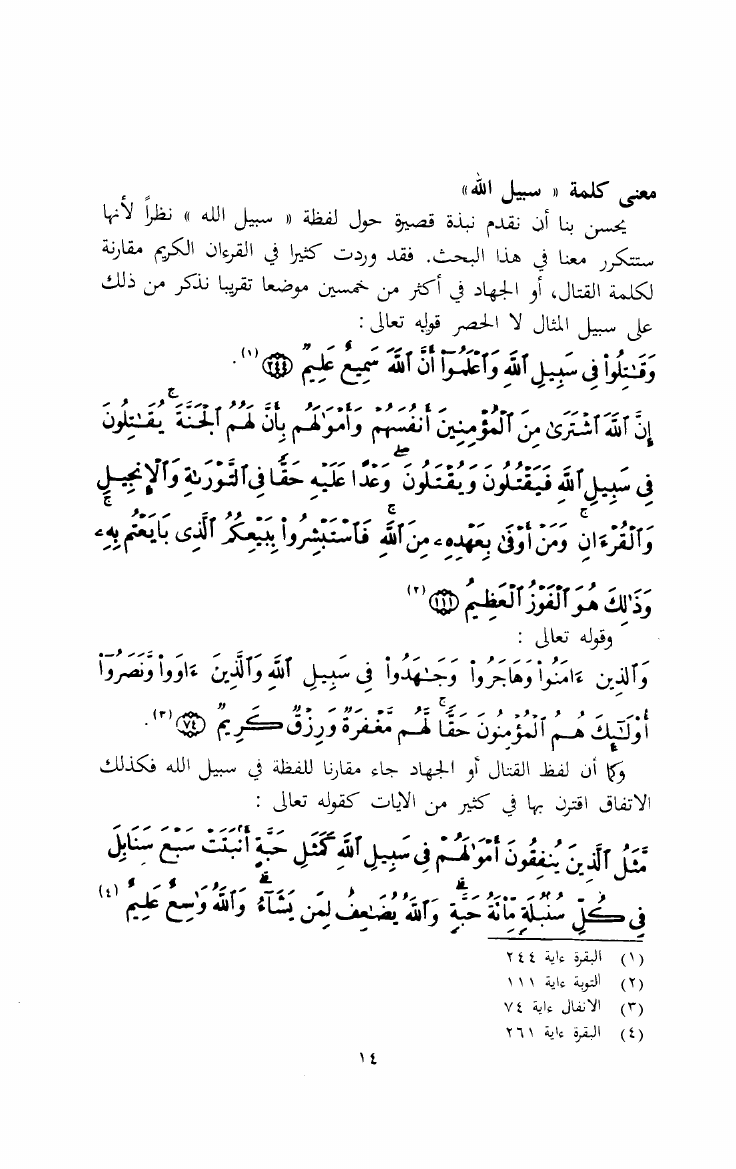 معنى كلمة « سبيل الله»
يحسن بنا أن نقدم نبذة قصيرة حول لفظة « سبيل الله » نظراً لأنها
ستتكرر معنا في هذا البحث. فقد وردت كثيرا في القرءان الكريم مقارنة
لكلمة القتال، أو الجهاد في أكثر من خمسين موضعا تقريبا نذكر من ذلك
على سبيل المثال لا الحصر قوله تعالى :
وَقَٰتِلُوا۟ فِى سَبِيلِ ٱللَّهِ وَٱعْلَمُوٓا۟ أَنَّ ٱللَّهَ سَمِيعٌ عَلِيمٌ ۝٢٤٤ (١).
إِنَّ ٱللَّهَ ٱشْتَرَىٰ مِنَ ٱلْمُؤْمِنِينَ أَنفُسَهُمْ وَأَمْوَٰلَهُم بِأَنَّ لَهُمُ ٱلْجَنَّةَ ۚ يُقَٰتِلُونَ
فِى سَبِيلِ ٱللَّهِ فَيَقْتُلُونَ وَيُقْتَلُونَ ۖ وَعْدًا عَلَيْهِ حَقًّا فِى ٱلتَّوْرَىٰةِ وَٱلْإِنجِيلِ
وَٱلْقُرْءَانِ ۚ وَمَنْ أَوْفَىٰ بِعَهْدِهِۦ مِنَ ٱللَّهِ ۚ فَٱسْتَبْشِرُوا۟ بِبَيْعِكُمُ ٱلَّذِى بَايَعْتُم بِهِۦ ۚ
وَذَٰلِكَ هُوَ ٱلْفَوْزُ ٱلْعَظِيمُ ۝١١١ (٢)
وقوله تعالى :
وَٱلَّذِينَ ءَامَنُوا۟ وَهَاجَرُوا۟ وَجَٰهَدُوا۟ فِى سَبِيلِ ٱللَّهِ وَٱلَّذِينَ ءَاوَوا۟ وَّنَصَرُوٓا۟
أُو۟لَٰٓئِكَ هُمُ ٱلْمُؤْمِنُونَ حَقًّا ۚ لَّهُم مَّغْفِرَةٌ وَرِزْقٌ كَرِيمٌ ۝٧٤ (٣).
وكما أن لفظ القتال أو الجهاد جاء مقارنا للفظة في سبيل الله فكذلك
الاتفاق اقترن بها في كثير من الايات كقوله تعالى :
مَّثَلُ ٱلَّذِينَ يُنفِقُونَ أَمْوَٰلَهُمْ فِى سَبِيلِ ٱللَّهِ كَمَثَلِ حَبَّةٍ أَنۢبَتَتْ سَبْعَ سَنَابِلَ
فِى كُلِّ سُنۢبُلَةٍ مِّا۟ئَةُ حَبَّةٍ ۗ وَٱللَّهُ يُضَٰعِفُ لِمَن يَشَآءُ ۗ وَٱللَّهُ وَٰسِعٌ عَلِيمٌ (٤)
(١) البقرة ءاية ٢٤٤
(٢) التوبة ءاية ١١١
(٣) الانفال ءاية ٧٤
(٤) البقرة ءاية ٢٦١
١٤